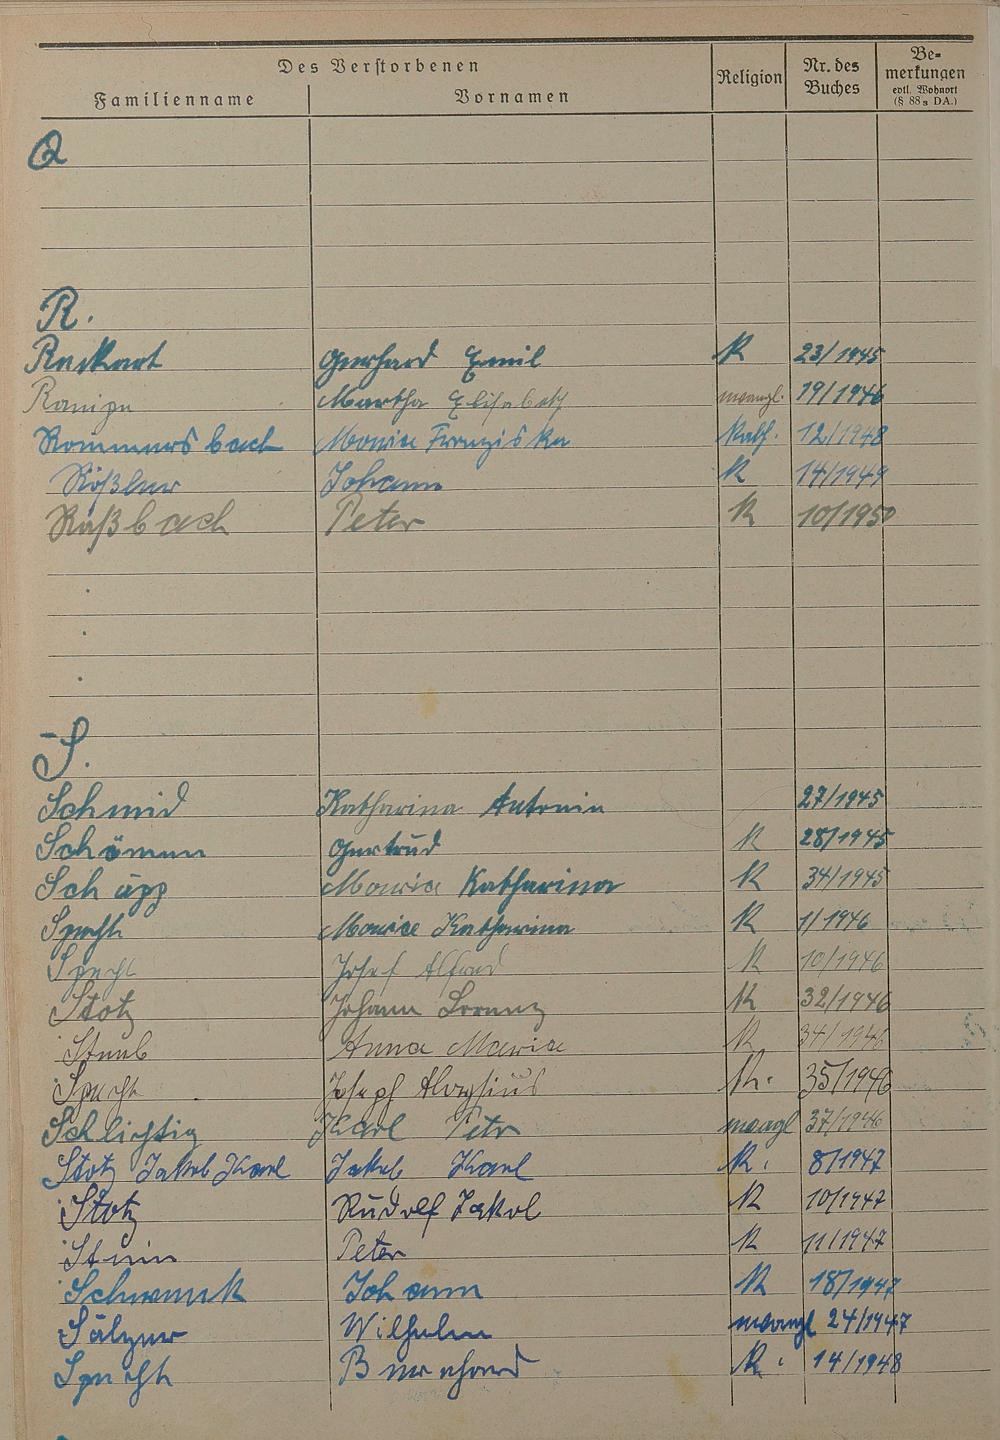 Des Verstorbenen
Familienname Vornamen Religion Nr. des Buches Bemerkungen evtl. Wohnort (§ 88a DA.)
Q
R.
Reckart Gerhard Emil K 23/1945
Martha Elisabeth evangl. 19/1946
Rommersbach Maria Franziska Kath. 12/1948
Rößler Johann K 14/1949
Raßbach Peter K 10/1950
S.
Schmid Katharina Antonia 27/1945
Schömer Gertrud K 28/1945
Schäpp Maria Katharina K 34/1945
Specht Maria Katharina K 1/1946
Specht Josef Alfred K 10/1946
Stotz Johann Lorenz K 32/1946
Staub Anna Maria K 34/1946
Specht Joseph Aloysius K. 35/1946
Schlichtig Karl Peter evangl 37/1946
Stotz Jakob Karl Jakob Karl K. 8/1947
Stotz Rudolf Jakob K 10/1947
Stein Peter K 11/1947
Schwenk Johann K 18/1947
Sälzer Wilhelm evangl 24/1947
Specht Bernhard K. 14/1948